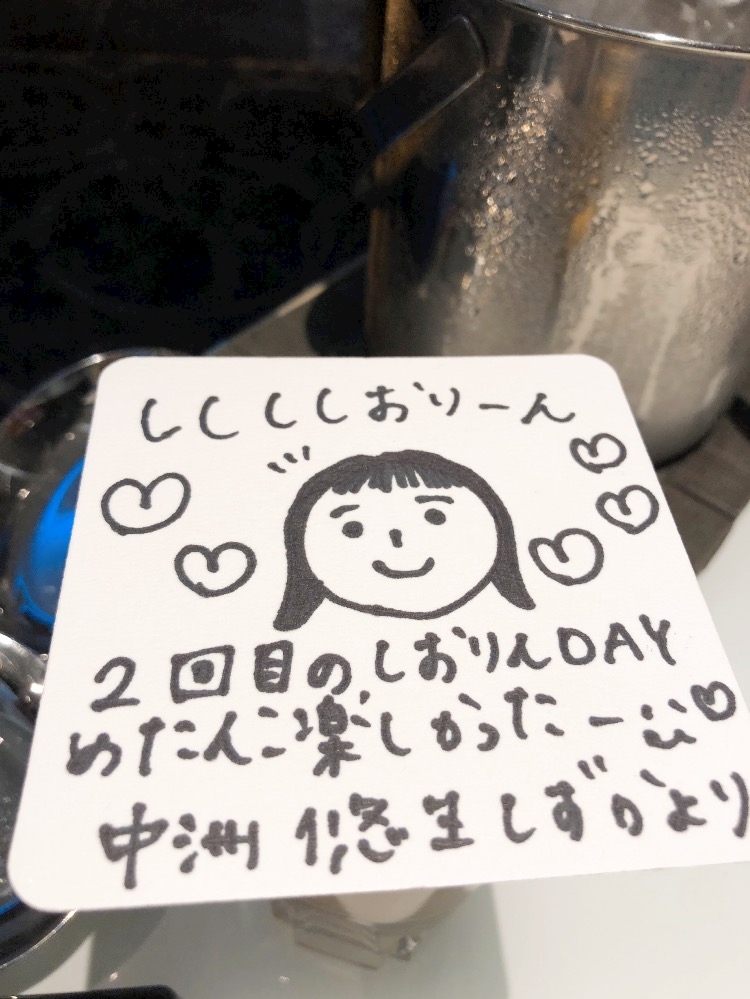 しししし おりーん
2回目のしおりんDAY
めたんこ楽しかったー
中洲 悠生 しずかより